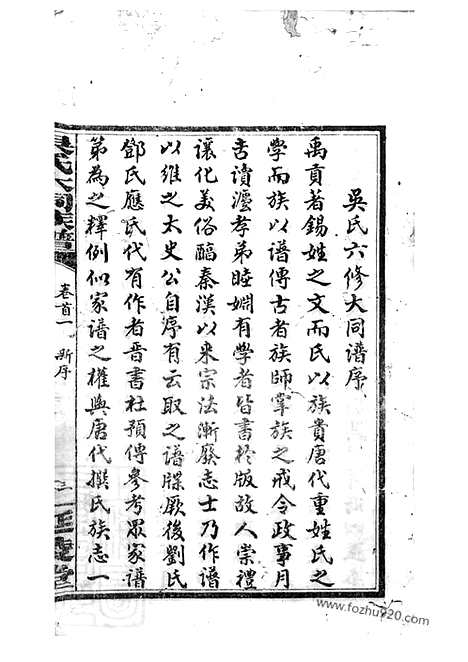 吳氏六修大同譜序
禹貢著錫姓之文而氏以族貴唐代重姓氏之
學而族以譜傳古者族師掌族之戒令政事月
吉讀灋孝弟睦婣有學者皆書於版故人崇禮
讓化美俗醕秦漢以來宗法漸廢志士乃作譜
以維之太史公自序有云取之譜牒厥後劉氏
鄧氏應氏代有作者晋書杜預傳參考眾家譜
第為之釋例似家譜之權輿唐代撰氏族志一
吳氏大同族譜
卷首一 新序
www.fozhu920.com